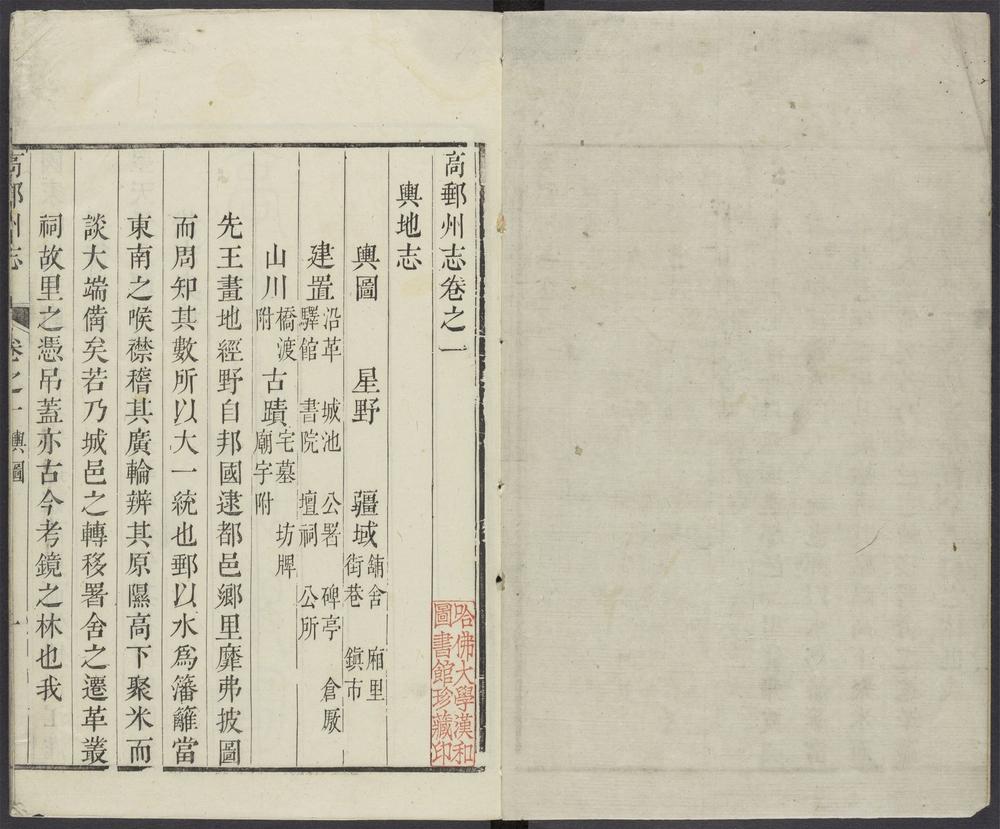 高郵州志卷之一
輿地志
輿圖　星野　疆域 舖舍　廂里 街巷　鎮市
建置 沿革　城池　公署　碑亭　倉厫 驛館　書院　壇祠　公所
山川 橋渡 附　古蹟 宅墓　坊牌 廟宇附
先王畫地經野自邦國逮都邑鄉里靡弗披圖
而周知其數所以大一統也郵以水爲籓籬當
東南之喉襟稽其廣輪辨其原隰高下聚米而
談大端備矣若乃城邑之轉移署舍之遷革叢
祠故里之憑吊蓋亦古今考鏡之林也我
高郵州志　卷之一　輿圖　一
哈佛大學漢和
圖書館珍藏印